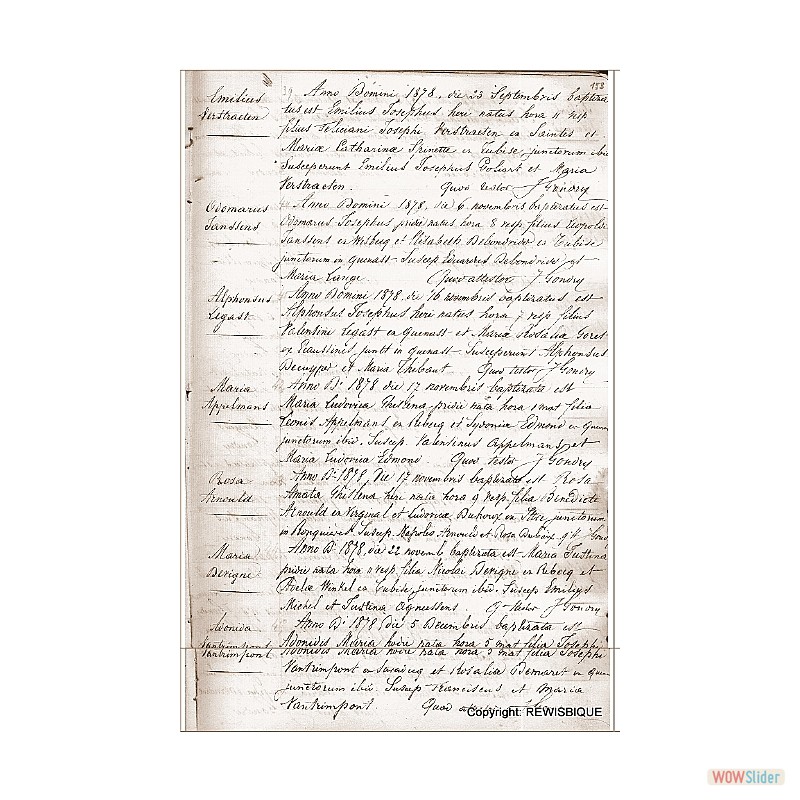 153
Emilius
Verstraeten
Anno Domini 1878, die 23 Septembris baptiza
tus est Emilius Josephus heri natus hora 11 vesp
filius Feliciani Josephi Verstraeten ex Saintes et
Mariæ Catharinæ Spinette ex Tubise junctorum ibi
Susceperunt Emilius Josephus et Maria
Verstraeten. Quod testor J Gondry
Odomarus
Janssens
Anno Domini 1878, die 6 novembris baptizatus est
Odomarus Josephus pridie natus hora 8 vesp. filius Leopoldi
Janssens ex Wisbecq et Elisabeth Debondrider ex Tubise
junctorum in Quenast. Suscep Eduardus Debondrider et
Maria Lange. Quod attestor J Gondry
Alphonsus
Legast
Anno Domini 1878 die 16 novembris baptizatus est
Alphonsus Josephus heri natus hora 7 vesp. filius
Valentini Legast ex Quenast et Mariæ Rosalia Goret
ex Ecaussines junct in Quenast. Susceperunt Alphonsus
et Maria Thibaut Quod testor J Gondry
Maria
Appelmans
Anno Di 1878 die 17 novembris baptizata est
Maria Ludovica Ghislena pridie nata hora 1 mat filia
Leonis Appelmans ex Rebecq et Sydonia Edmond ex Quenas
junctorum ibid. Suscep. Valentinus Appelmans et
Maria Ludovica Edmond Quod testor J Gondry
Rosa
Arnould
Anno Di 1878, Die 17 novembris baptizata est Rosa
Amata Ghislena heri nata hora 9 vesp. filia Benedicti
Arnould ex Virginal et Ludovica ex Ittre junctorum
in Suscep. Napoleo Arnould et Rosa
Maria
Derigne
Anno Di 1878, die 22 novemb baptizata est Maria Justina
pridie nata hora 11 vesp. filia Nicolai Derigne ex Rebecq et
Winkel ex Tubise junctorum ibid. Suscep Emilius
Michel et Justina Agneessens Q. testor J Gondry
Adonida
Vantrimpont
Vantrimpont
Anno Di 1878 die 5 Decembris baptizata est
Adonidis Maria hodie nata hora 5 mat filia Josephi
Adonidis Maria hodie nata hora 5 mat filia Josephi
Vantrimpont ex et Rosalia Demaret ex Quen
junctorum ibid. Suscep Franciscus et Maria
Vantrimpont. Quod
Copyright: REWISBIQUE
WOWSlider